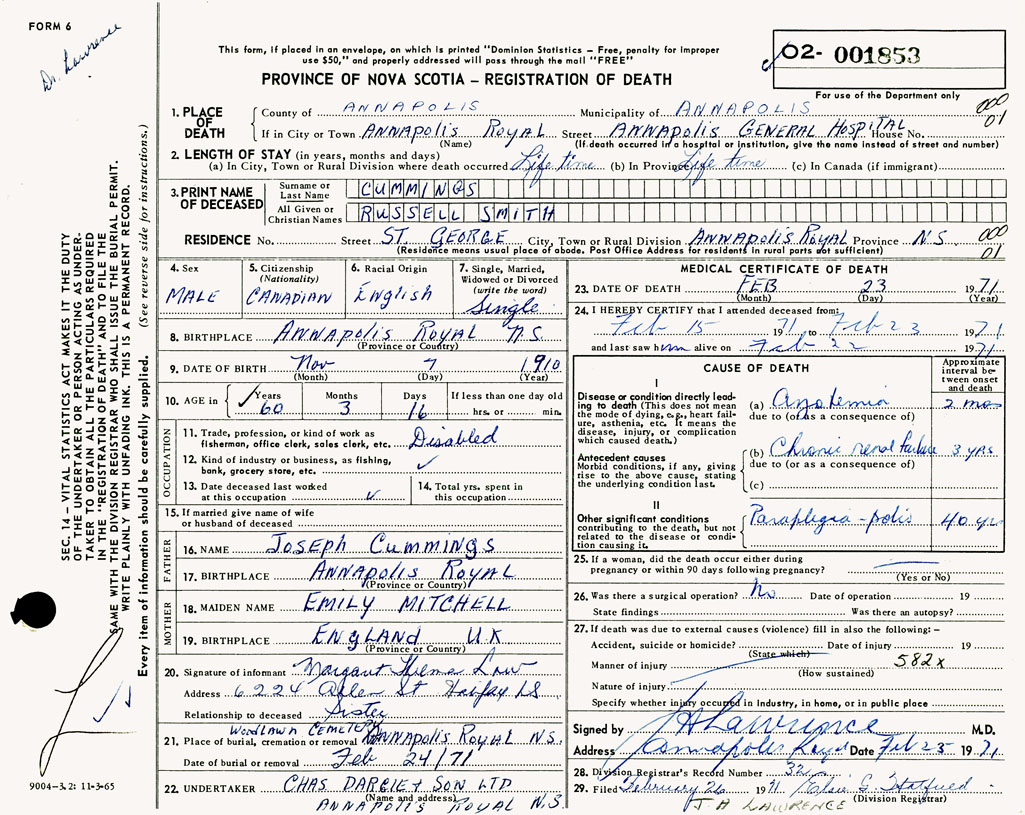 FORM 6
Dr. Lawrence
This form, if placed in an envelope, on which is printed "Dominion Statistics – Free, penalty for improper
use $50," and properly addressed will pass through the mail "FREE"
PROVINCE OF NOVA SCOTIA – REGISTRATION OF DEATH
02- 001853
For use of the Department only
SEC. 14 – VITAL STATISTICS ACT MAKES IT THE DUTY
OF THE UNDERTAKER OR PERSON ACTING AS UNDER-
TAKER TO OBTAIN ALL THE PARTICULARS REQUIRED
IN THE "REGISTRATION OF DEATH" AND TO FILE THE
SAME WITH THE DIVISION REGISTRAR WHO SHALL ISSUE THE BURIAL PERMIT.
WRITE PLAINLY WITH UNFADING INK. THIS IS A PERMANENT RECORD.
Every item of information should be carefully supplied. (See reverse side for instructions.)
1. PLACE OF DEATH
County of ANNAPOLIS Municipality of ANNAPOLIS 000
If in City or Town ANNAPOLIS ROYAL Street ANNAPOLIS GENERAL HOSPITAL House No. 01
(Name) (If death occurred in a hospital or institution, give the name instead of street and number)
2. LENGTH OF STAY (in years, months and days)
(a) In City, Town or Rural Division where death occurred Life time (b) In Province Life time (c) In Canada (if immigrant)
3. PRINT NAME OF DECEASED
Surname or Last Name CUMMINGS
All Given or Christian Names RUSSELL SMITH
RESIDENCE No. Street ST. GEORGE City, Town or Rural Division ANNAPOLIS ROYAL Province N S 000
(Residence means usual place of abode. Post Office Address for residents in rural parts not sufficient) 01
4. Sex MALE
5. Citizenship (Nationality) CANADIAN
6. Racial Origin English
7. Single, Married, Widowed or Divorced (write the word) Single
8. BIRTHPLACE ANNAPOLIS ROYAL N.S.
(Province or Country)
9. DATE OF BIRTH Nov 7 1910
(Month) (Day) (Year)
10. AGE in Years 60 Months 3 Days 16 If less than one day old hrs. or min.
OCCUPATION
11. Trade, profession, or kind of work as
fisherman, office clerk, sales clerk, etc. Disabled
12. Kind of industry or business, as fishing,
bank, grocery store, etc.
13. Date deceased last worked
at this occupation
14. Total yrs. spent in
this occupation
15. If married give name of wife
or husband of deceased
FATHER
16. NAME JOSEPH CUMMINGS
17. BIRTHPLACE ANNAPOLIS ROYAL
(Province or Country)
MOTHER
18. MAIDEN NAME EMILY MITCHELL
19. BIRTHPLACE ENGLAND U.K
(Province or Country)
20. Signature of informant Margaret Law
Address 6224 St Halifax NS
Relationship to deceased Sister
WOODLAWN CEMETERY
21. Place of burial, cremation or removal ANNAPOLIS ROYAL N.S.
Date of burial or removal Feb 24/71
22. UNDERTAKER CHAS DARGIE & SON LTD
(Name and address)
ANNAPOLIS ROYAL N.S.
9004-3.2: 11-3-65
MEDICAL CERTIFICATE OF DEATH
23. DATE OF DEATH FEB 23 1971
(Month) (Day) (Year)
24. I HEREBY CERTIFY that I attended deceased from:
Feb 15 1971 to Feb 23 1971
and last saw him alive on Feb 22 1971
CAUSE OF DEATH
Approximate interval between onset and death
I
Disease or condition directly leading to death (This does not mean the mode of dying, e.g., heart failure, asthenia, etc. It means the disease, injury, or complication which caused death.)
(a) Azotemia 2 mos
due to (or as a consequence of)
Antecedent causes
Morbid conditions, if any, giving rise to the above cause, stating the underlying condition last.
(b) Chronic renal failure 3 yrs
due to (or as a consequence of)
(c)
II
Other significant conditions
contributing to the death, but not related to the disease or condition causing it.
Paraplegia - polio 40 yrs
25. If a woman, did the death occur either during
pregnancy or within 90 days following pregnancy?
(Yes or No)
26. Was there a surgical operation? No Date of operation 19
State findings Was there an autopsy?
27. If death was due to external causes (violence) fill in also the following: –
Accident, suicide or homicide? Date of injury 19
(State which) 582x
Manner of injury
(How sustained)
Nature of injury
Specify whether injury occurred in Industry, in home, or in public place
Signed by JA Lawrence M.D.
Address Annapolis Royal Date Feb 25 1971
28. Division Registrar's Record Number 32
29. Filed February 26 1971
(Division Registrar)
J A LAWRENCE